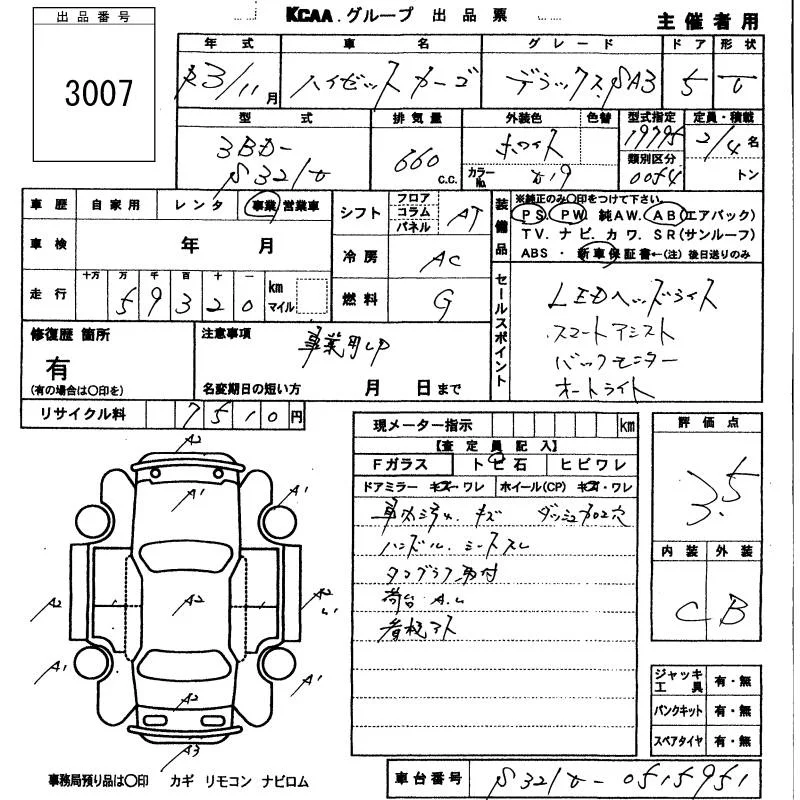 出品番号
3007
KCAA.グループ 出品票
主催者用
年式 車名 グレード ドア 形状
R3/11月 ハイゼットカーゴ デラックスSA3 5 V
型式 排気量 外装色 色替 型式指定 定員・積載
3BD-
S321V 660 c.c. ホワイト 19775 2/4名
カラーNo. W19 類別区分 0054 トン
車歴 自家用 レンタ 事業 営業車
車検 年 月
走行 十万 万 千 百 十 一 km マイル
59320
シフト フロア コラム パネル AT
冷房 AC
燃料 G
装備品 ※純正のみ○印をつけて下さい。
PS. PW. 純AW. AB(エアバック)
TV. ナビ. カワ. SR(サンルーフ)
ABS ・ 新車保証書←(注)後日送りのみ
セールスポイント
LEDヘッドライト
スマートアシスト
バックモニター
オートライト
修復歴 箇所
有
(有の場合は○印を)
注意事項
事業用UP
名変期日の短い方 月 日まで
リサイクル料 7510円
現メーター指示 km
【査定員記入】
Fガラス トビ石 ヒビワレ
ドアミラー キズ・ワレ ホイール(CP) キズ・ワレ
車内 キズ ダッシュ 穴
ハンドル.シートスレ
タコグラフ取付
荷台 A.U
看板アト
評価点
3.5
内装 外装
C B
ジャッキ工具 有・無
パンクキット 有・無
スペアタイヤ 有・無
A2
A1 A1 A1
A2 A2 A2
A1 A1
A2
A3
事務局預り品は○印 カギ リモコン ナビロム
車台番号 S321V-0515951